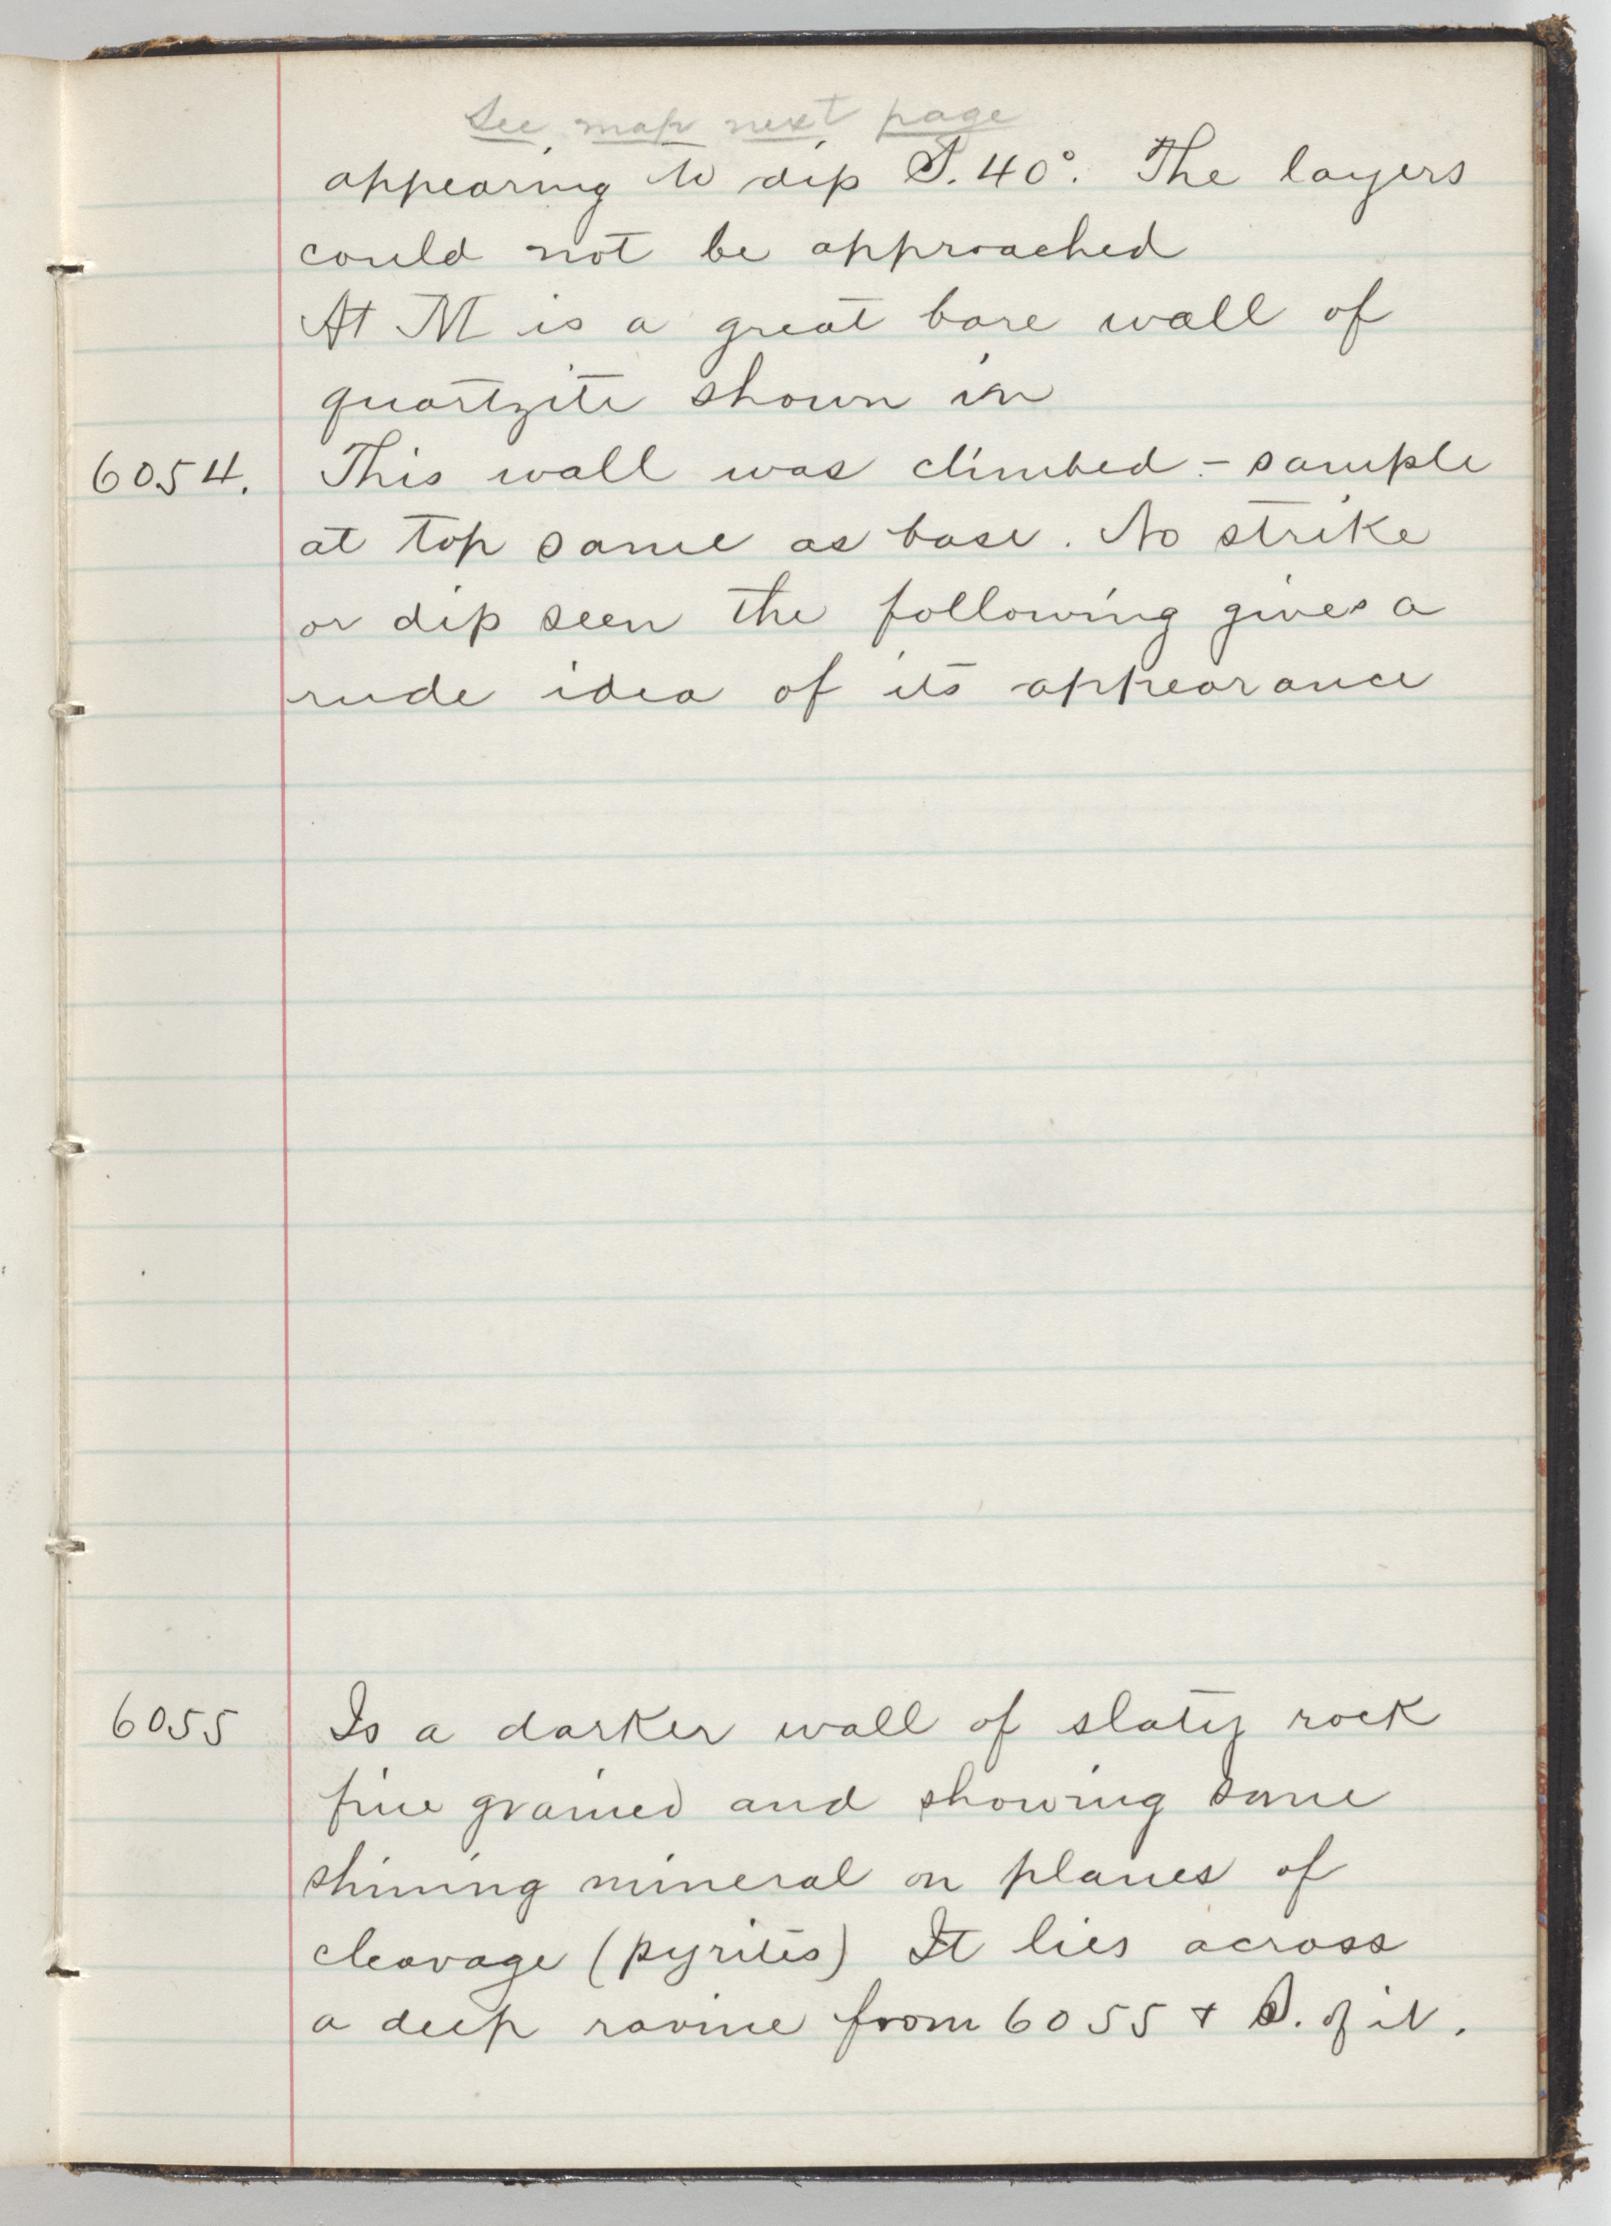 See map next page
appearing to dip S. 40°. The layers
could not be approached
At M is a great bare wall of
quartzite shown in
6054. This wall was climbed - sample
at top same as base. No strike
or dip seen the following gives a
rude idea of its appearance
6055 Is a darker wall of slaty rock
fine grained and showing some
shining mineral on planes of
cleavage (pyrites) It lies across
a deep ravine from 6055 + S. of it.